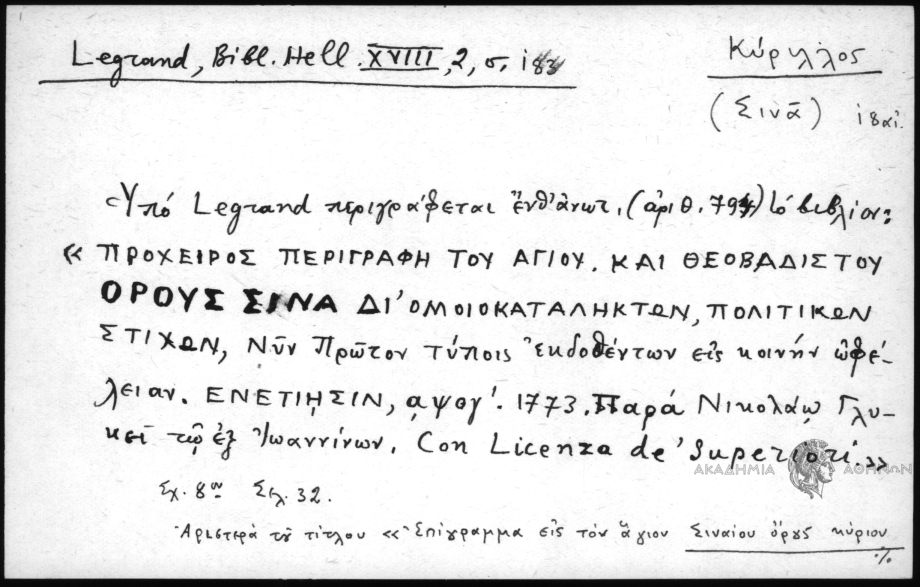 Legrand, Bibl. Hell. XVIII, 2, σ. 183
Κύριλλος
(Σινᾶ) ιδαί.
Ὑπό Legrand περιγράφεται ἔνθ' ἀνωτ. (ἀριθ. 794) τό βιβλίον:
« ΠΡΟΧΕΙΡΟΣ ΠΕΡΙΓΡΑΦΗ ΤΟΥ ΑΓΙΟΥ. ΚΑΙ ΘΕΟΒΑΔΙΣΤΟΥ
ΟΡΟΥΣ ΣΙΝΑ ΔΙ' ΟΜΟΙΟΚΑΤΑΛΗΚΤΩΝ, ΠΟΛΙΤΙΚΩΝ
ΣΤΙΧΩΝ, Νῦν Πρῶτον τύποις Ἐκδοθέντων εἰς κοινήν ὠφέ-
λειαν. ΕΝΕΤΙΗΣΙΝ, αψογ'. 1773. Παρά Νικολάῳ Γλυ-
κεῖ τῷ ἐξ Ἰωαννίνων. Con Licenza de' Superiori.»
ΑΚΑΔΗΜΙΑ ΑΘΗΝΩΝ
Σχ. 8ον Σελ. 32.
Ἀριστερά τοῦ τίτλου «Ἐπίγραμμα εἰς τόν ἅγιον Σιναίου ὄρους κύριον
·/·